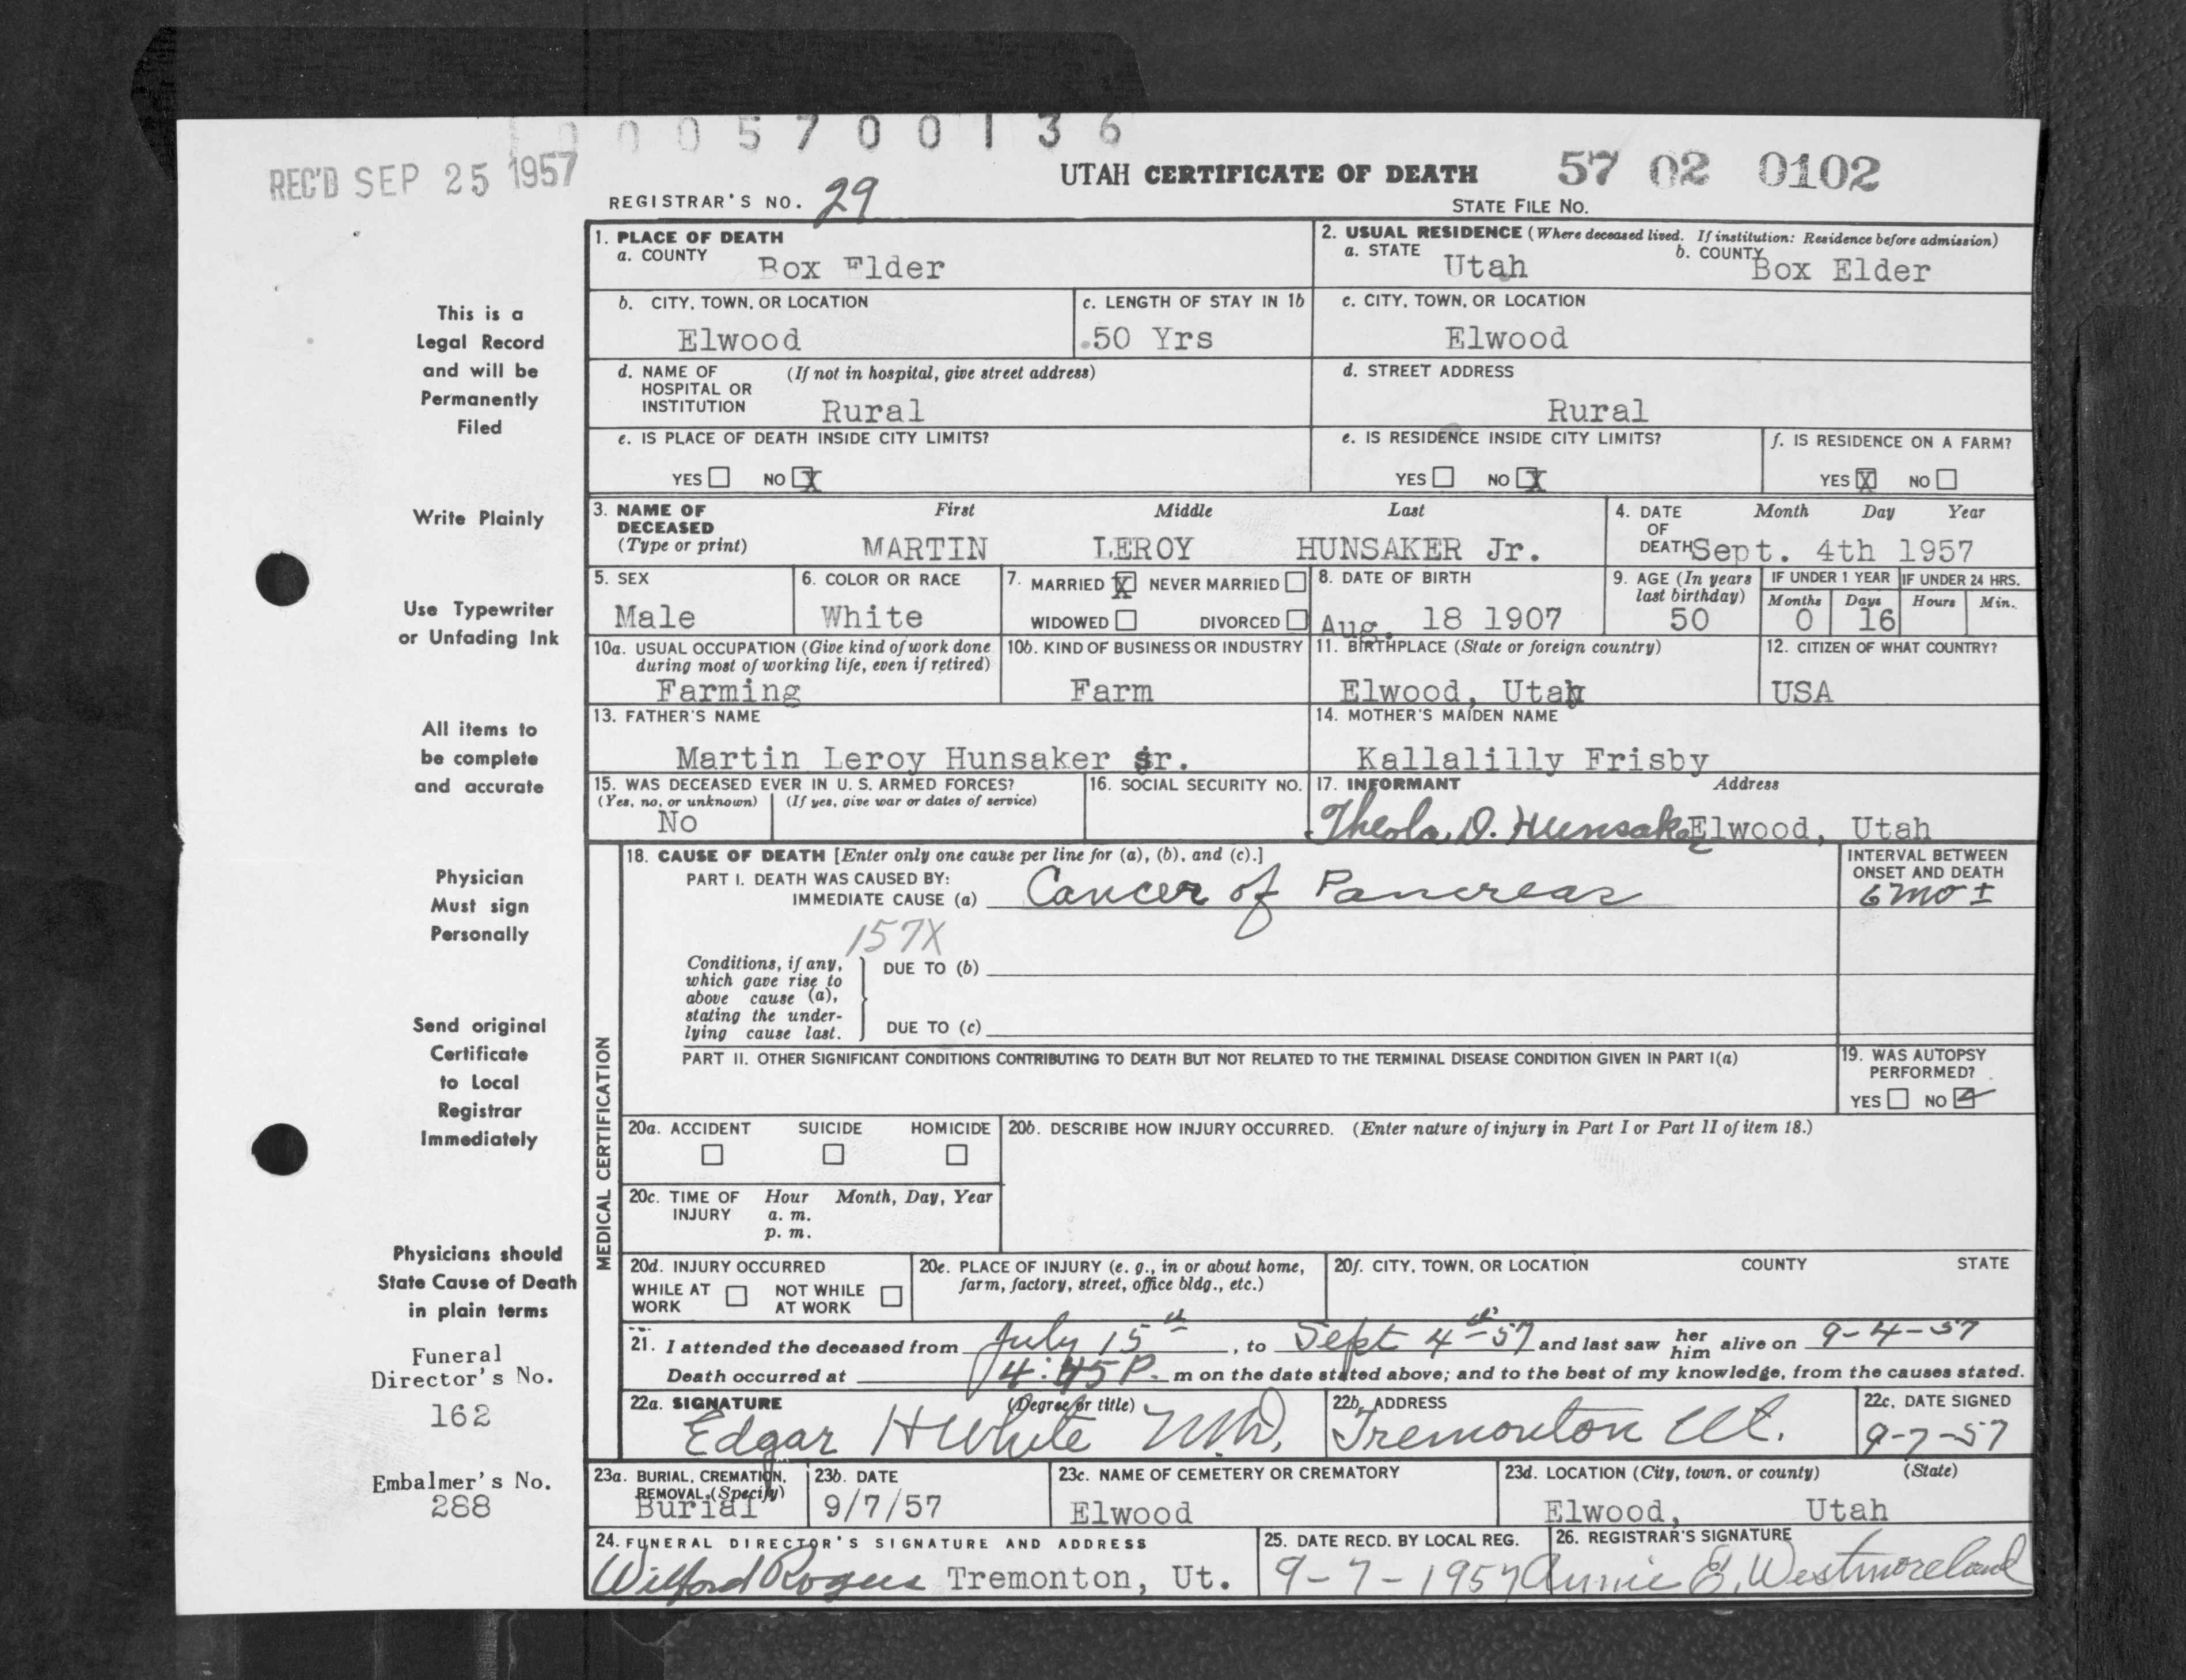 0005700136
REC'D SEP 25 1957
UTAH CERTIFICATE OF DEATH 57 02 0102
REGISTRAR'S NO. 29
STATE FILE NO.
1. PLACE OF DEATH
a. COUNTY Box Elder
2. USUAL RESIDENCE (Where deceased lived. If institution: Residence before admission)
a. STATE Utah b. COUNTY Box Elder
b. CITY, TOWN, OR LOCATION Elwood
c. LENGTH OF STAY IN 1b 50 Yrs
c. CITY, TOWN, OR LOCATION Elwood
d. NAME OF (If not in hospital, give street address)
HOSPITAL OR
INSTITUTION Rural
d. STREET ADDRESS
Rural
e. IS PLACE OF DEATH INSIDE CITY LIMITS?
YES NO X
e. IS RESIDENCE INSIDE CITY LIMITS?
YES NO X
f. IS RESIDENCE ON A FARM?
YES X NO
3. NAME OF DECEASED (Type or print)
First Middle Last
MARTIN LEROY HUNSAKER Jr.
4. DATE OF DEATH Month Day Year
Sept. 4th 1957
5. SEX
Male
6. COLOR OR RACE
White
7. MARRIED X NEVER MARRIED
WIDOWED DIVORCED
8. DATE OF BIRTH
Aug. 18 1907
9. AGE (In years last birthday)
50
IF UNDER 1 YEAR
Months Days
0 16
IF UNDER 24 HRS.
Hours Min.
10a. USUAL OCCUPATION (Give kind of work done
during most of working life, even if retired)
Farming
10b. KIND OF BUSINESS OR INDUSTRY
Farm
11. BIRTHPLACE (State or foreign country)
Elwood, Utah
12. CITIZEN OF WHAT COUNTRY?
USA
13. FATHER'S NAME
Martin Leroy Hunsaker Sr.
14. MOTHER'S MAIDEN NAME
Kallalilly Frisby
15. WAS DECEASED EVER IN U. S. ARMED FORCES?
(Yes, no, or unknown) (If yes, give war or dates of service)
No
16. SOCIAL SECURITY NO.
17. INFORMANT Address
Theola D. Hunsaker Elwood, Utah
MEDICAL CERTIFICATION
18. CAUSE OF DEATH [Enter only one cause per line for (a), (b), and (c).]
PART I. DEATH WAS CAUSED BY:
IMMEDIATE CAUSE (a) Cancer of Pancreas
INTERVAL BETWEEN
ONSET AND DEATH
6 mo ±
157X
Conditions, if any,
which gave rise to
above cause (a),
stating the under-
lying cause last.
DUE TO (b)
DUE TO (c)
PART II. OTHER SIGNIFICANT CONDITIONS CONTRIBUTING TO DEATH BUT NOT RELATED TO THE TERMINAL DISEASE CONDITION GIVEN IN PART I(a)
19. WAS AUTOPSY
PERFORMED?
YES NO
20a. ACCIDENT SUICIDE HOMICIDE
20b. DESCRIBE HOW INJURY OCCURRED. (Enter nature of injury in Part I or Part II of item 18.)
20c. TIME OF INJURY Hour Month, Day, Year
a. m.
p. m.
20d. INJURY OCCURRED
WHILE AT WORK NOT WHILE AT WORK
20e. PLACE OF INJURY (e. g., in or about home,
farm, factory, street, office bldg., etc.)
20f. CITY, TOWN, OR LOCATION COUNTY STATE
21. I attended the deceased from July 15th, to Sept 4th 57 and last saw her him alive on 9-4-57
Death occurred at 4:45 P. m on the date stated above; and to the best of my knowledge, from the causes stated.
22a. SIGNATURE (Degree or title)
Edgar H White M.D.
22b. ADDRESS
Tremonton Ut.
22c. DATE SIGNED
9-7-57
23a. BURIAL, CREMATION,
REMOVAL, (Specify)
Burial
23b. DATE
9/7/57
23c. NAME OF CEMETERY OR CREMATORY
Elwood
23d. LOCATION (City, town, or county) (State)
Elwood, Utah
24. FUNERAL DIRECTOR'S SIGNATURE AND ADDRESS
Wilford Rogers Tremonton, Ut.
25. DATE RECD. BY LOCAL REG.
9-7-1957
26. REGISTRAR'S SIGNATURE
Annie E. Westmoreland
This is a
Legal Record
and will be
Permanently
Filed
Write Plainly
Use Typewriter
or Unfading Ink
All items to
be complete
and accurate
Physician
Must sign
Personally
Send original
Certificate
to Local
Registrar
Immediately
Physicians should
State Cause of Death
in plain terms
Funeral
Director's No.
162
Embalmer's No.
288